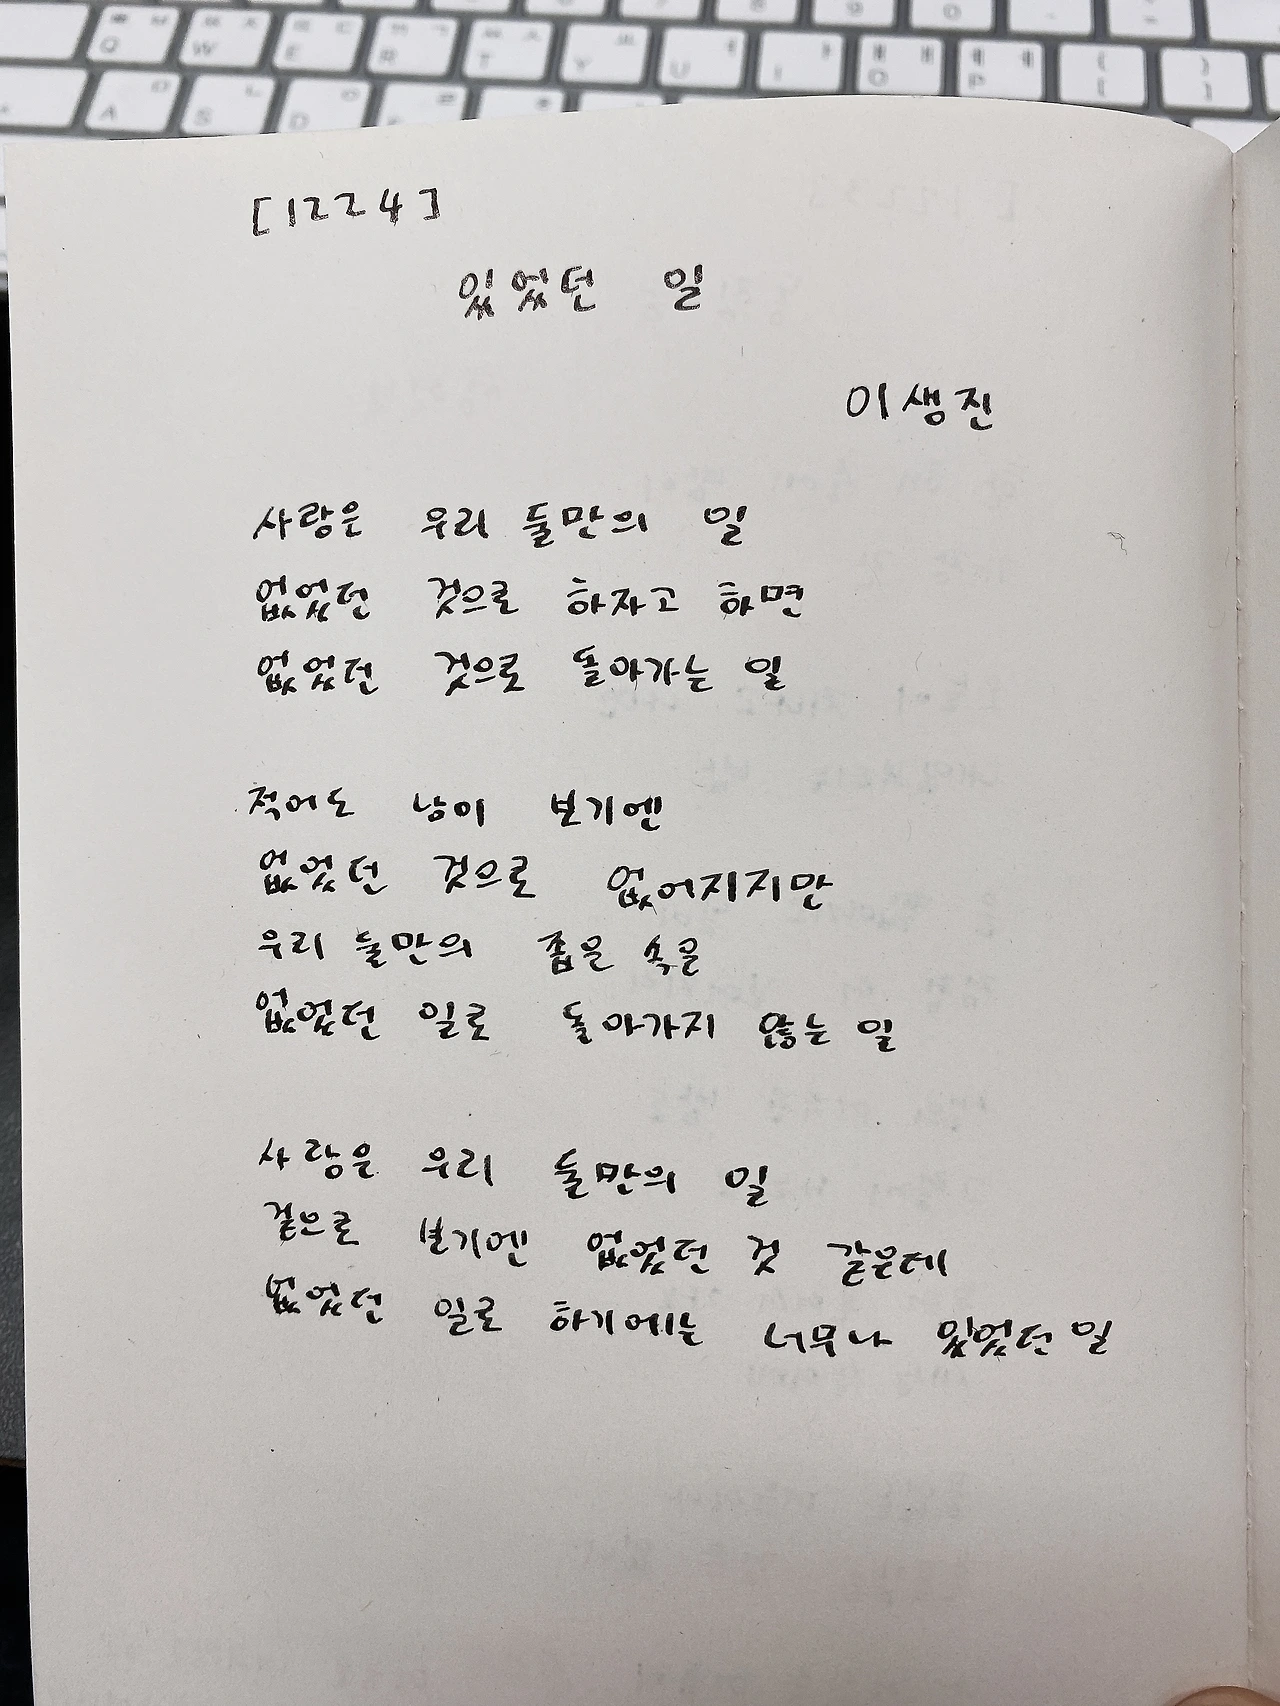 [1224]
있었던 일
이생진
사랑은 우리 둘만의 일
없었던 것으로 하자고 하면
없었던 것으로 돌아가는 일
적어도 남이 보기엔
없었던 것으로 없어지지만
우리 둘만의 좁은 속은
없었던 일로 돌아가지 않는 일
사랑은 우리 둘만의 일
겉으로 보기엔 없었던 것 같은데
없었던 일로 하기에는 너무나 있었던 일